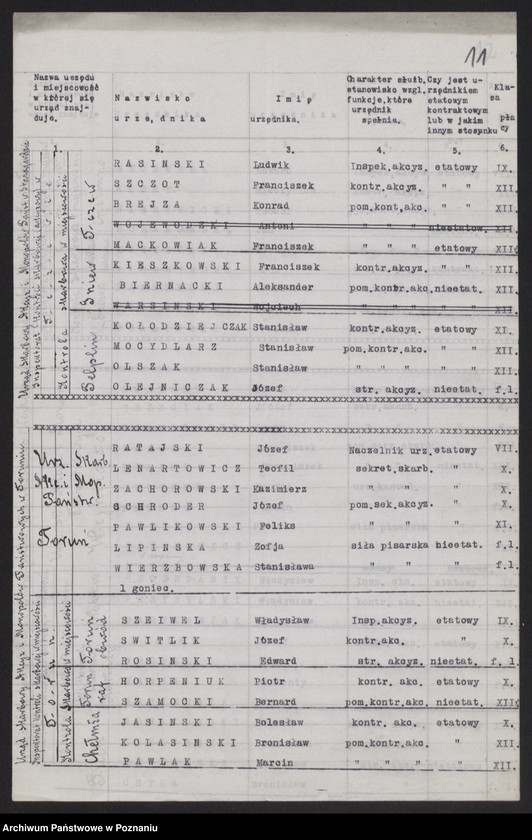 11
Nazwa uczędu
i miejscowość
w której się
urząd znaj-
duje.
Nazwisko
urzędnika
Imię
urzędnika.
Charakter służb.
stanowisko wzgl.
funkcje,które
urzędnik
spełnia.
Czy jest u-
rzędnikiem
etatowym
kontraktowym
lub w jakim
innym stosunku
Kla-
sa
pła
cy
1. 2. 3. 4. 5. 6.
Kontrola Skarbowa w miejscowości
Tczew
Gniew
Pelplin
RASINSKI Ludwik Inspek.akcyz. etatowy IX.
SZCZOT Franciszek kontr.akcyz. " " XII.
BREJZA Konrad pom.kont.akc. " " XII.
WOJEWODZKI Antoni " " " nieetatow. XII
MACKOWIAK Franciszek " " " etatowy XII
KIESZKOWSKI Franciszek kontr.akcyz. " " XII.
BIERNACKI Aleksander pom.kontr.akc. nieetat. " XII.
WARSINSKI Wojciech " " " " " XII
KOŁODZIEJCZAK Stanisław kontr.akcyz. etatowy XI.
MOCYDLARZ Stanisław pom.kontr.akc. " " XII.
OLSZAK Stanisław " " " " " XII.
OLEJNICZAK Józef str. akcyz. nieetat. f.l.
Urz. Skarb.
Akc. i Mop.
Państw.
Toruń
RATAJSKI Józef Naczelnik urz. etatowy VII.
LENARTOWICZ Teofil sekret.skarb. " X.
ZACHOROWSKI Kazimierz " " " X.
SCHRODER Józef pom.sek.akcyz. " X.
PAWLIKOWSKI Feliks " " " XI.
LIPINSKA Zofja siła pisarska nieetat. f.l.
WIERZBOWSKA Stanisława " " " f.l.
1 goniec.
Kontrola Skarbowa w miejscowości
Toruń
Chełmża
SZEIWEL Władysław Insp.akcyz. etatowy IX.
SWITLIK Józef kontr.akc. " X.
ROSINSKI Edward str. akcyz. nieetat. f.l.
HORPENIUK Piotr kontr. akc. etatowy X.
SZAMOCKI Bernard pom.kontr.akc. nieetat. XII
JASINSKI Bolesław kontr. akc. etatowy X.
KOLASINSKI Bronisław pom.kontr.akc. " XII.
PAWLAK Marcin " " " " XII.
Archiwum Państwowe w Poznaniu